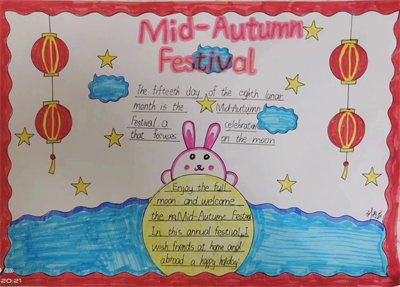 Mid-Autumn
Festival
The fifteenth day of the eighth lunar
month is the Mid-Autumn
Festival, a celebration
that focuses on the moon
Enjoy the full
moon and welcome
the Mid-Autumn Festival
In this annual festival, I
wish friends at home and
abroad a happy holiday!
20:21